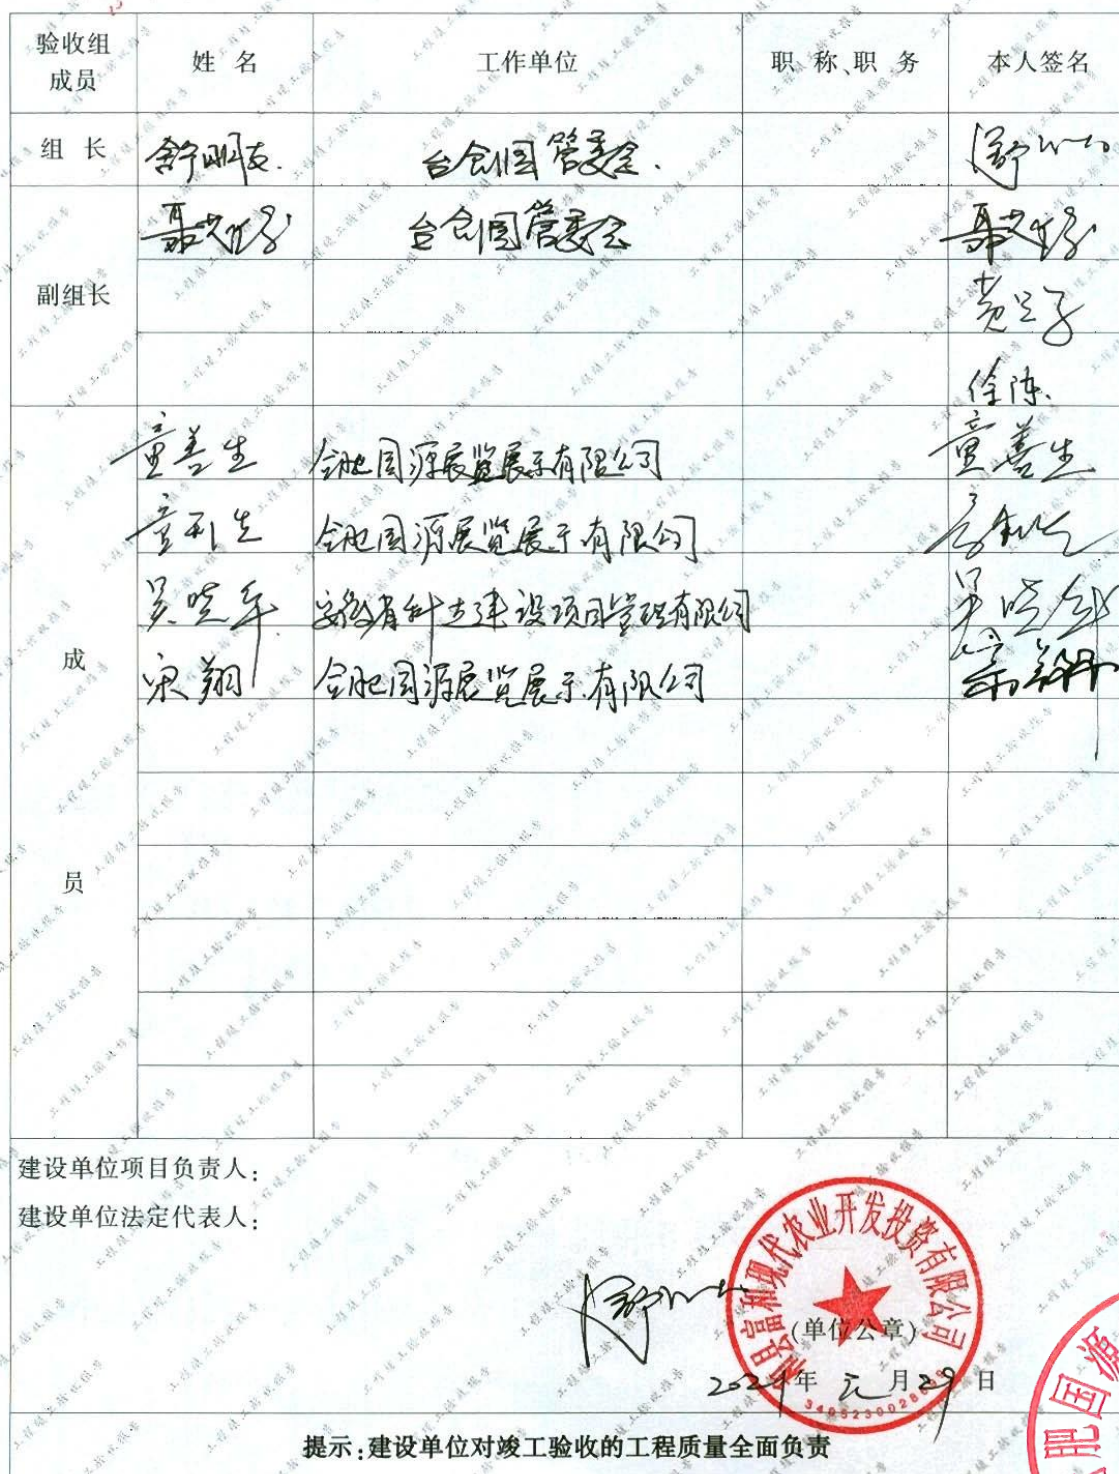 验收组成员 姓 名 工作单位 职 称、职 务 本人签名
组 长 舒明友. 台创园管委会.
副组长 台创园管委会
黄
徐陈.
童善生 合肥国源展览展示有限公司 童善生
童利生 合肥国源展览展示有限公司
吴晓年 安徽省科达建设项目管理有限公司
宋翔 合肥国源展览展示有限公司
成
员
建设单位项目负责人:
建设单位法定代表人:
和县富和现代农业开发投资有限公司
(单位公章)
2021年 元月29日
提示:建设单位对竣工验收的工程质量全面负责
肥国源
工程竣工验收报告